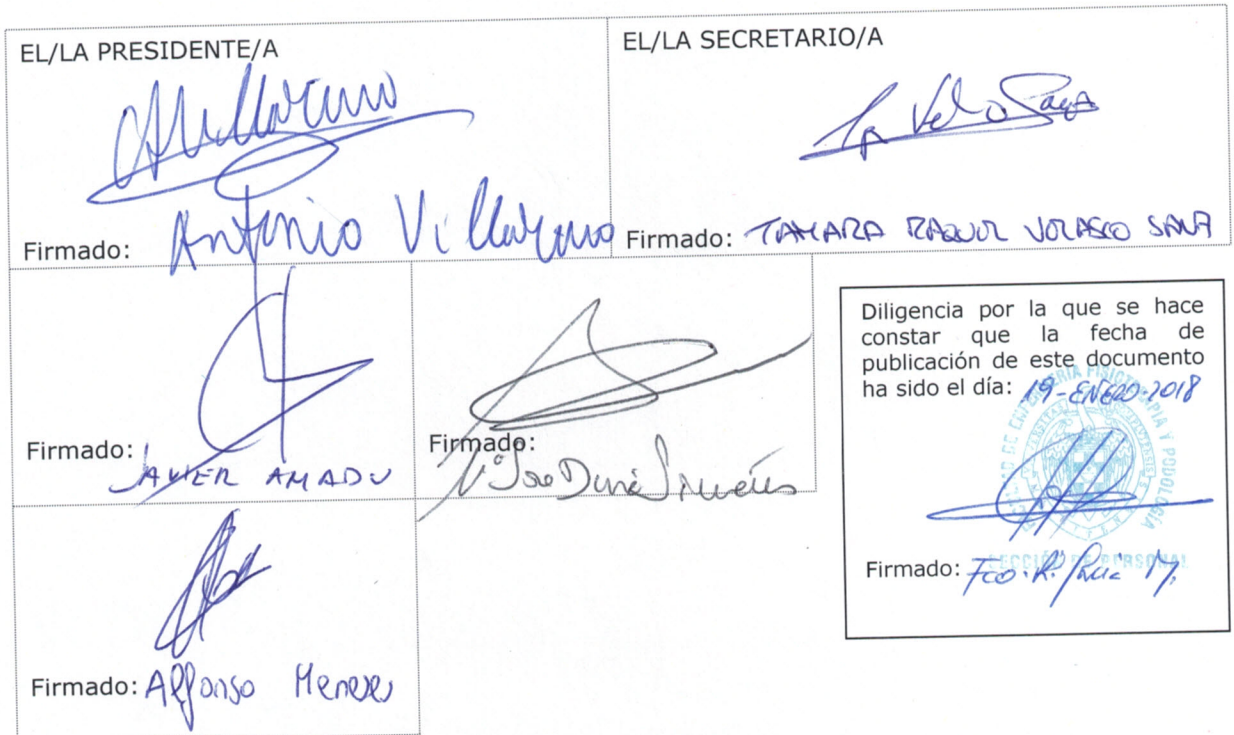 EL/LA PRESIDENTE/A
Firmado: Antonio Villarino
EL/LA SECRETARIO/A
Firmado: TAMARA RAQUEL VELASCO SANZ
Firmado:
JAVIER AMADU
Firmado:
Mª José
Firmado: Alfonso Meneses
Diligencia por la que se hace
constar que la fecha de
publicación de este documento
ha sido el día: 19-ENERO-2018
FISIOTERAPIA Y PODOLOGÍA
SECCIÓN DE PERSONAL
Firmado: Fco.